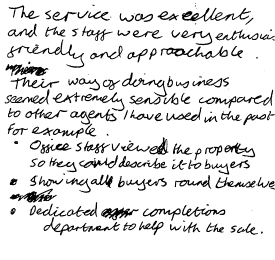 The service was excellent,
and the staff were very enthusias
friendly and approachable.
Their way of doing business
seemed extremely sensible compared
to other agents I have used in the past
For example.
• Office staff viewed the property
so they could describe it to buyers
• Showing all buyers round themselve
• Dedicated completions
department to help with the sale.